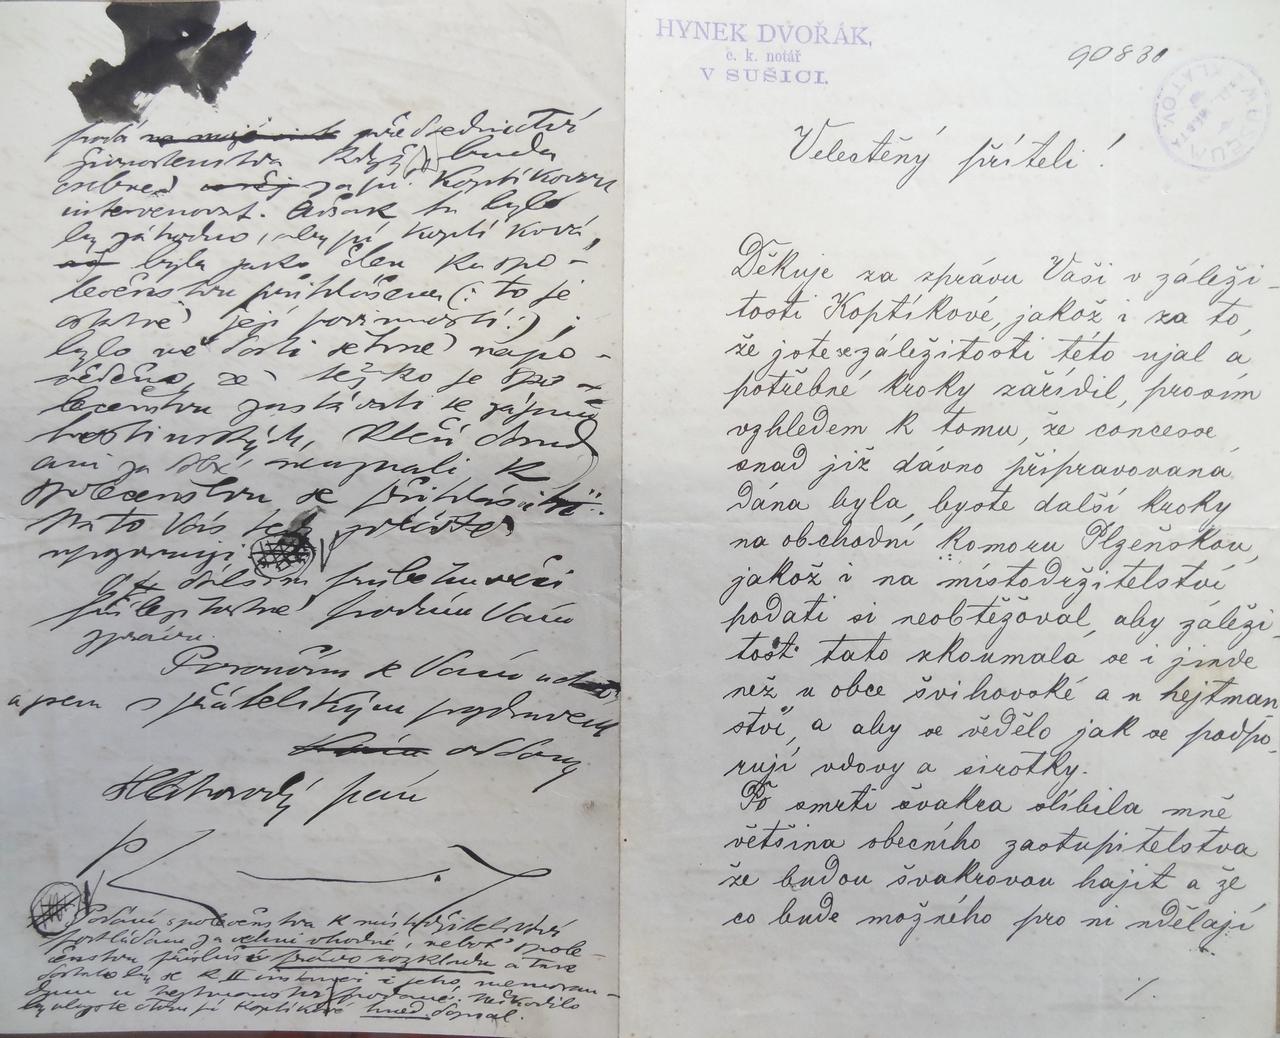 podá předsednictví
živnostenstva když budu
osobně paní Koptíkovou
intervenovat. Avšak tu bylo
by záhodno, aby pí Koptíková,
byla jako člen ku spo-
lečenstvu přihlášena (: to je
ostatně její povinností :) ;
bylo mě dosti šetrně napo-
věděno, že těžko je spo-
lečenstvu zastávati se zájmů
hostinských, kteří dosud
ani za své neuznali k
společenstvu se přihlásiti.
Na to Vás
upozorňuji.
O dalším průběhu věci
příležitostně podám Vám
zprávu.
Poroučím se Vám
a jsem s přátelským pozdravem
oddaný
Podání společenstva k místodržitelství
pokládám za velmi vhodné, neboť spole-
čenstvu přísluší právo rozkladu a tak
dostalo by se k II instanci i jeho memoran-
dum u hejtmanství podané. Neškodilo
by abyste o tom pí Koptíkové hned dopsal.
HYNEK DVOŘÁK,
c. k. notář
V SUŠICI.
90830
MUSEUM MĚSTA KLATOV.
Velectěný příteli!
Děkuje za zprávu Vaši v záleži-
tosti Koptíkové, jakož i za to,
že jste se záležitosti této ujal a
potřebné kroky zařídil, prosím
vzhledem k tomu, že concesse
snad již dávno připravovaná
dána byla, byste další kroky
na obchodní komoru Plzeňskou,
jakož i na místodržitelství
podati si neobtěžoval, aby záleži-
tost tato zkoumala se i jinde
než u obce švihovské a u hejtman
ství, a aby se vědělo jak se podpo-
rují vdovy a sirotky.
Po smrti švakra slíbila mně
většina obecního zastupitelstva
že budou švakrovou hajit a že
co bude možného pro ni udělají
./.